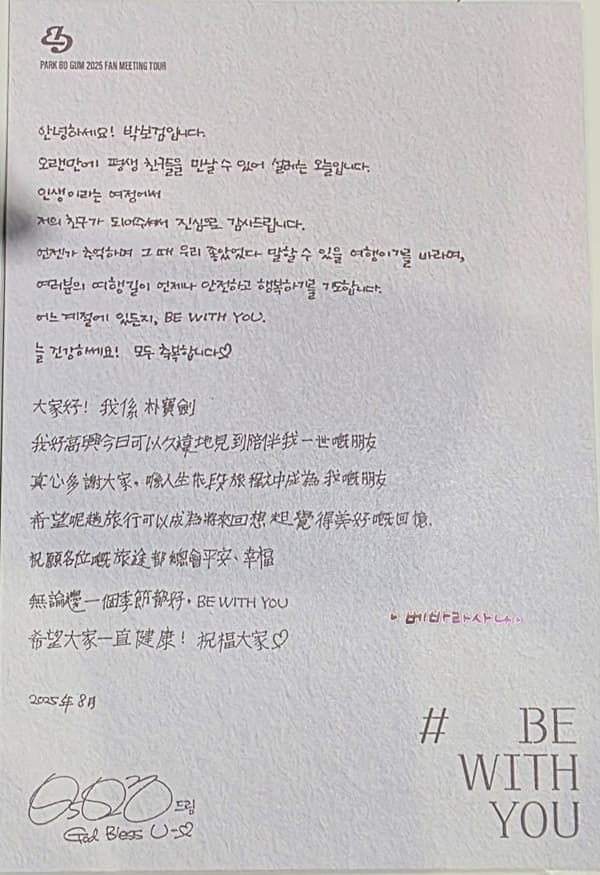 PARK BO GUM 2025 FAN MEETING TOUR
안녕하세요! 박보검입니다.
오랜만에 평생 친구들을 만날 수 있어 설레는 오늘입니다.
인생이라는 여정에서
저의 친구가 되어주셔서 진심으로 감사드립니다.
언젠가 추억하며 그 때 우리 좋았었다 말할 수 있을 여행이기를 바라며,
여러분의 여행길이 언제나 안전하고 행복하기를 기도합니다.
어느 계절에 있든지, BE WITH YOU.
늘 건강하세요! 모두 축복합니다♡
大家好! 我係 朴寶劍
我好高興今日可以久違地見到陪伴我一世嘅朋友
真心多謝大家，喺人生呢段旅程之中成為我嘅朋友
希望呢趟旅行可以成為將來回想起覺得美好嘅回憶.
祝願各位嘅旅途都總會平安、幸福
無論邊一個季節都好，BE WITH YOU
希望大家一直健康! 祝福大家♡
베바라사나
2025年8月
드림
God Bless U-♡
# BE
WITH
YOU